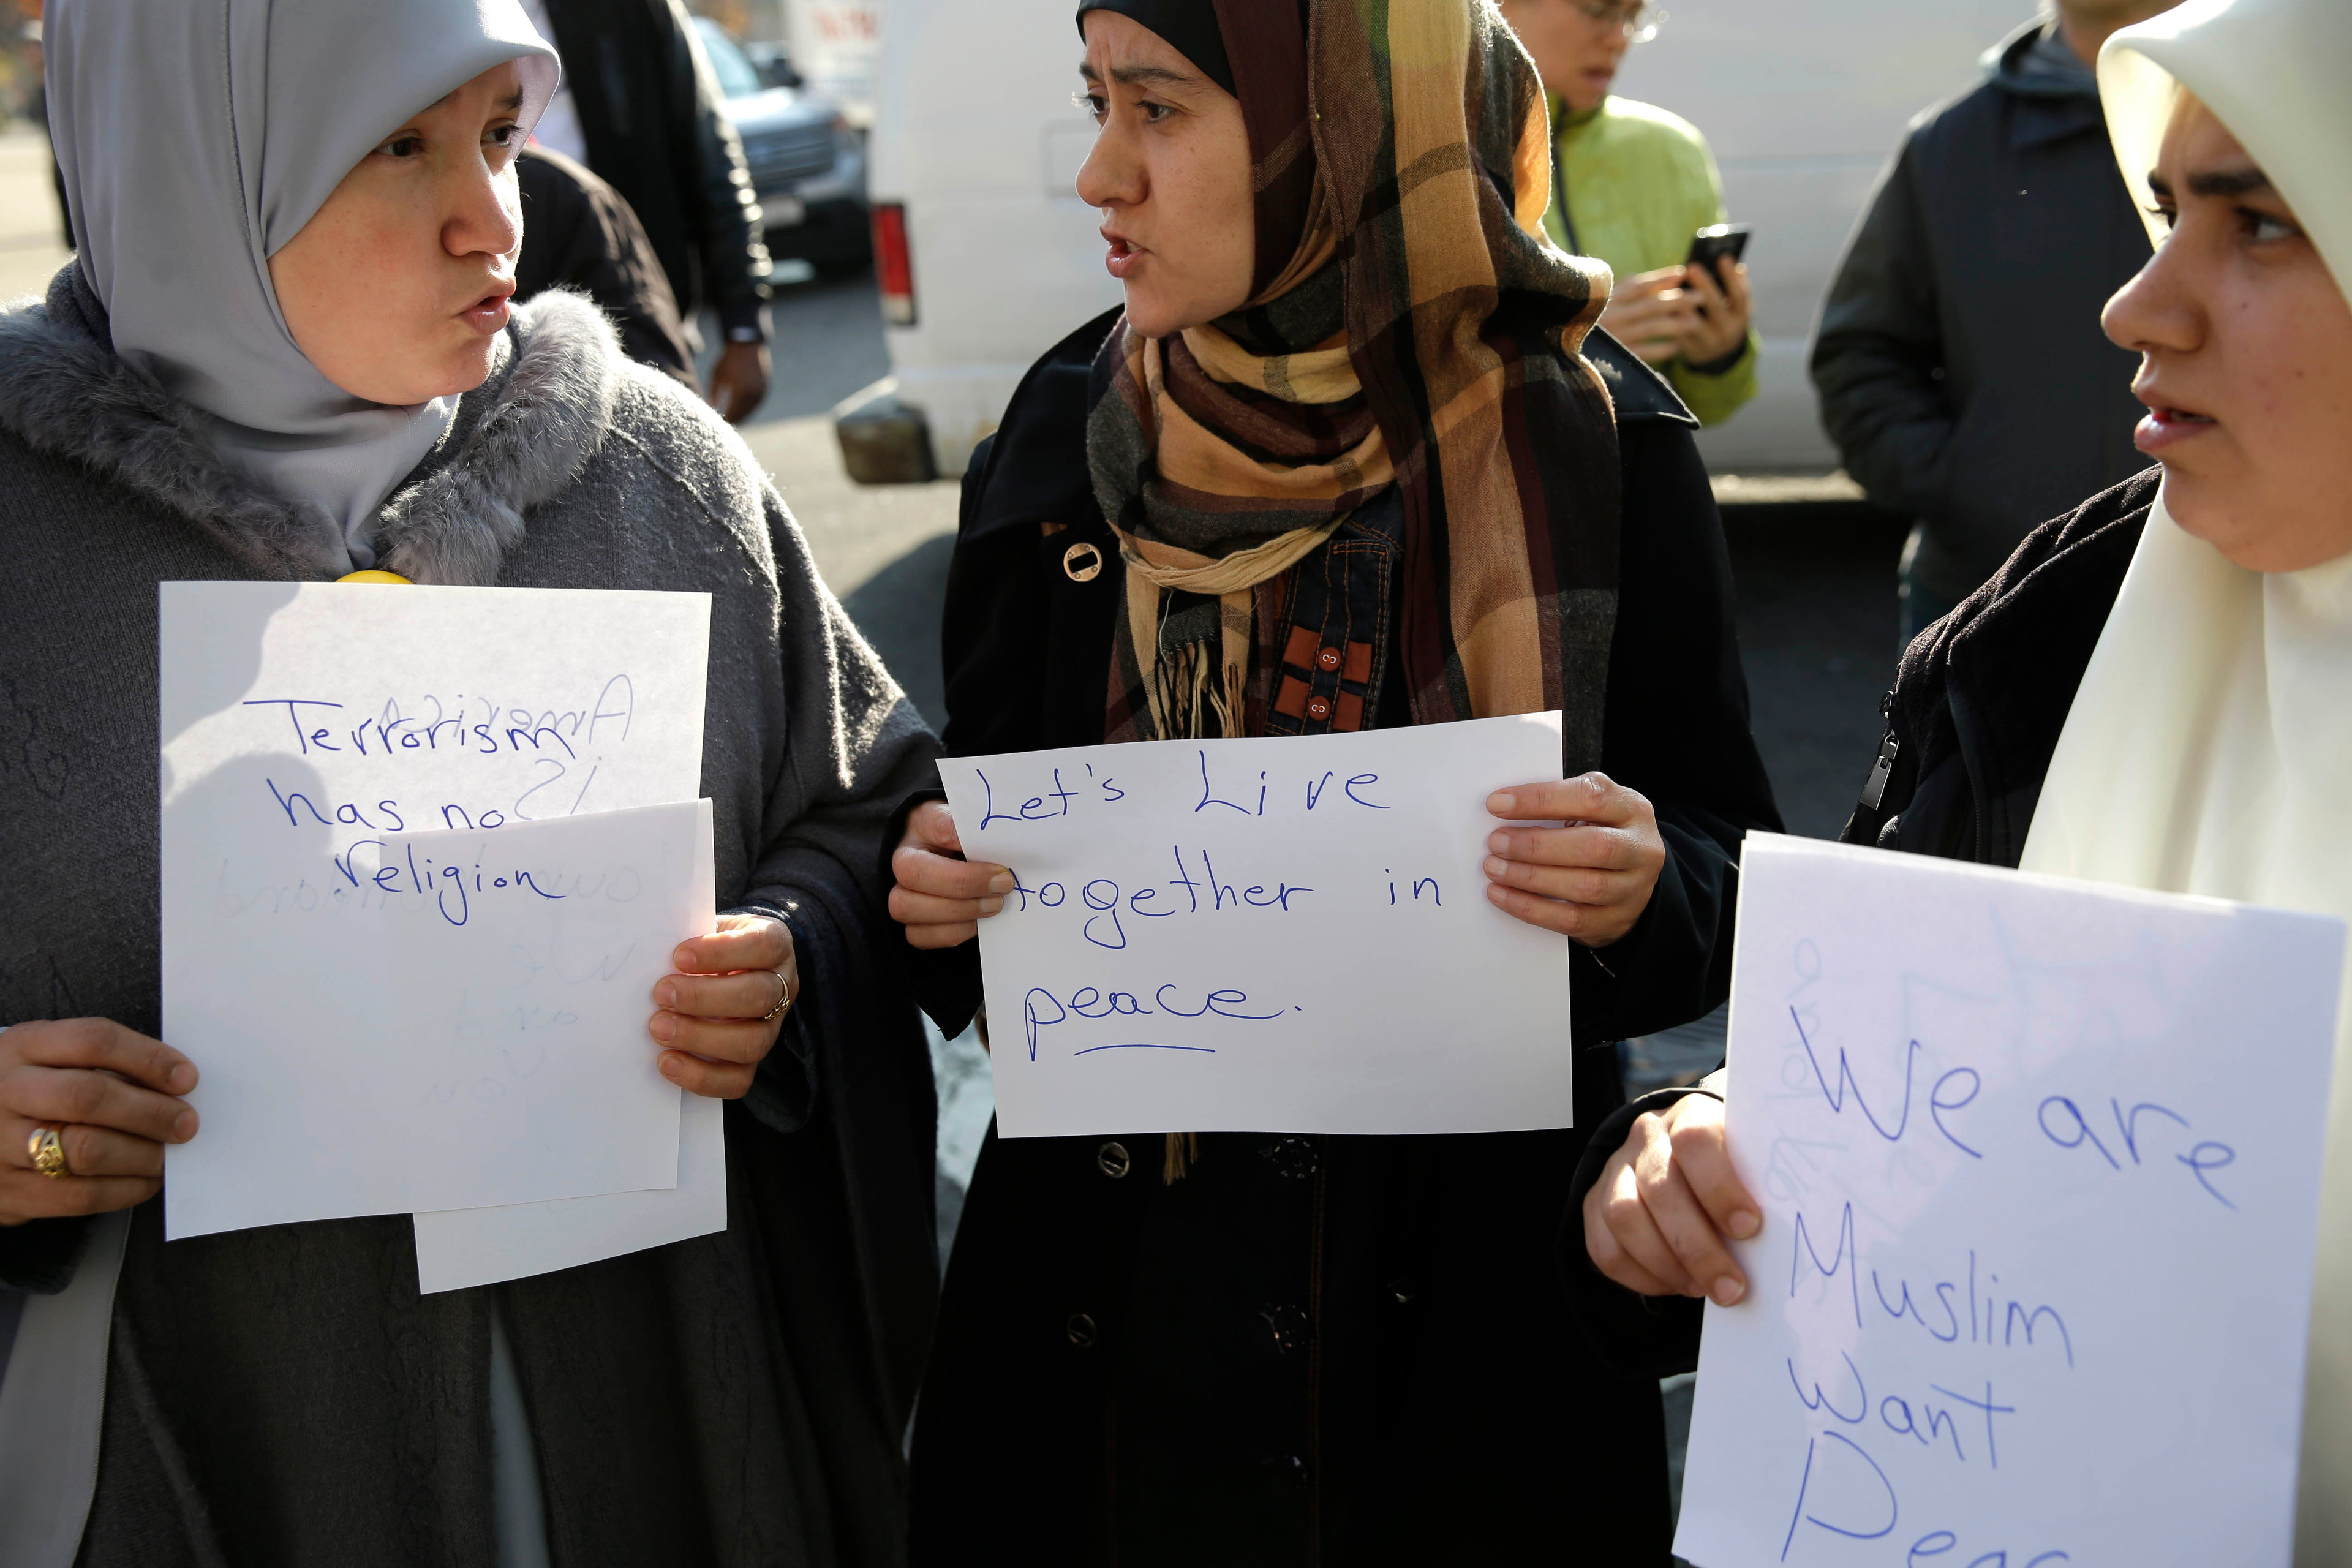 Terrorism
has no
religion
Let's Live
together in
peace.
We are
Muslim
want
Peac